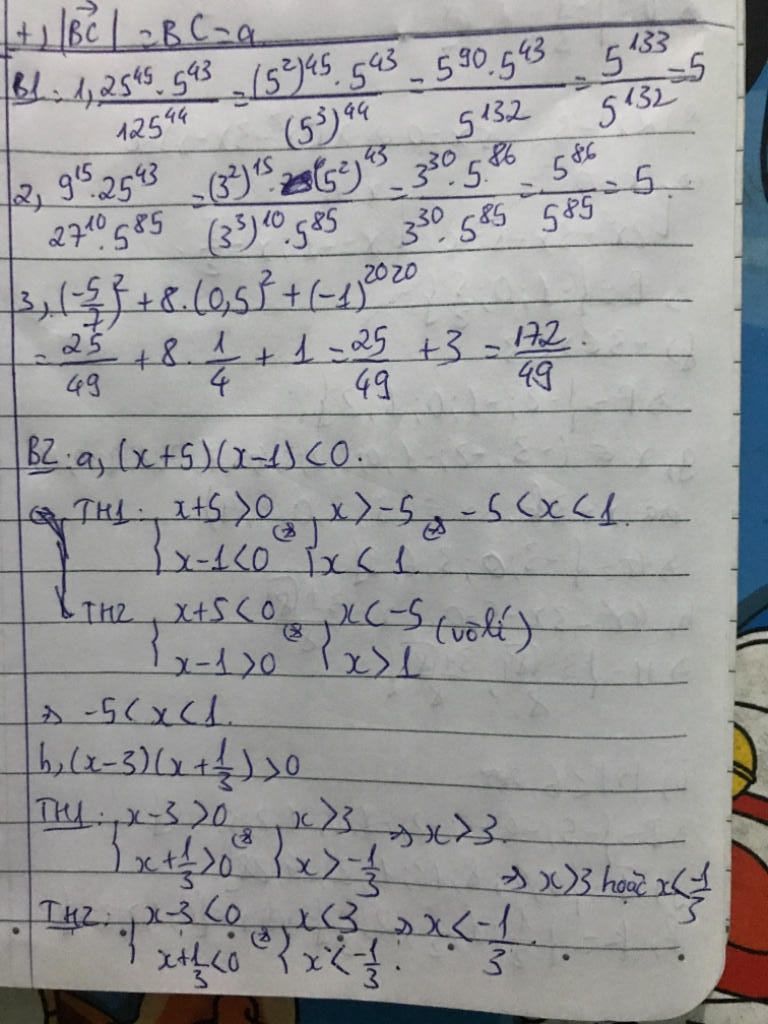 +, |\vec{BC}| = BC = a
B1: 1, \frac{25^{45} . 5^{43}}{125^{44}} = \frac{(5^2)^{45} . 5^{43}}{(5^3)^{44}} = \frac{5^{90} . 5^{43}}{5^{132}} = \frac{5^{133}}{5^{132}} = 5
2, \frac{9^{15} . 25^{43}}{27^{10} . 5^{85}} = \frac{(3^2)^{15} . (5^2)^{43}}{(3^3)^{10} . 5^{85}} = \frac{3^{30} . 5^{86}}{3^{30} . 5^{85}} = \frac{5^{86}}{5^{85}} = 5.
3, (\frac{-5}{7})^2 + 8.(0,5)^2 + (-1)^{2020}
= \frac{25}{49} + 8 . \frac{1}{4} + 1 = \frac{25}{49} + 3 = \frac{172}{49}.
B2: a, (x+5)(x-1) < 0.
TH1: { x+5 > 0 ⇔ { x > -5 ⇔ -5 < x < 1.
x-1 < 0 x < 1.
TH2 { x+5 < 0 ⇔ { x < -5 (vô lí)
x-1 > 0 x > 1
⇒ -5 < x < 1.
b, (x-3)(x+\frac{1}{3}) > 0
TH1: { x-3 > 0 ⇔ { x > 3 ⇒ x > 3.
x+\frac{1}{3} > 0 x > \frac{-1}{3} ⇒ x > 3 hoặc x < \frac{-1}{3}
TH2: { x-3 < 0 ⇔ { x < 3 ⇒ x < \frac{-1}{3}.
x+\frac{1}{3} < 0 x < \frac{-1}{3}.